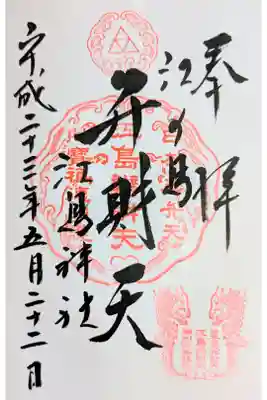 奉拝
江の島
弁財天
江島神社
平成二十三年五月二十二日